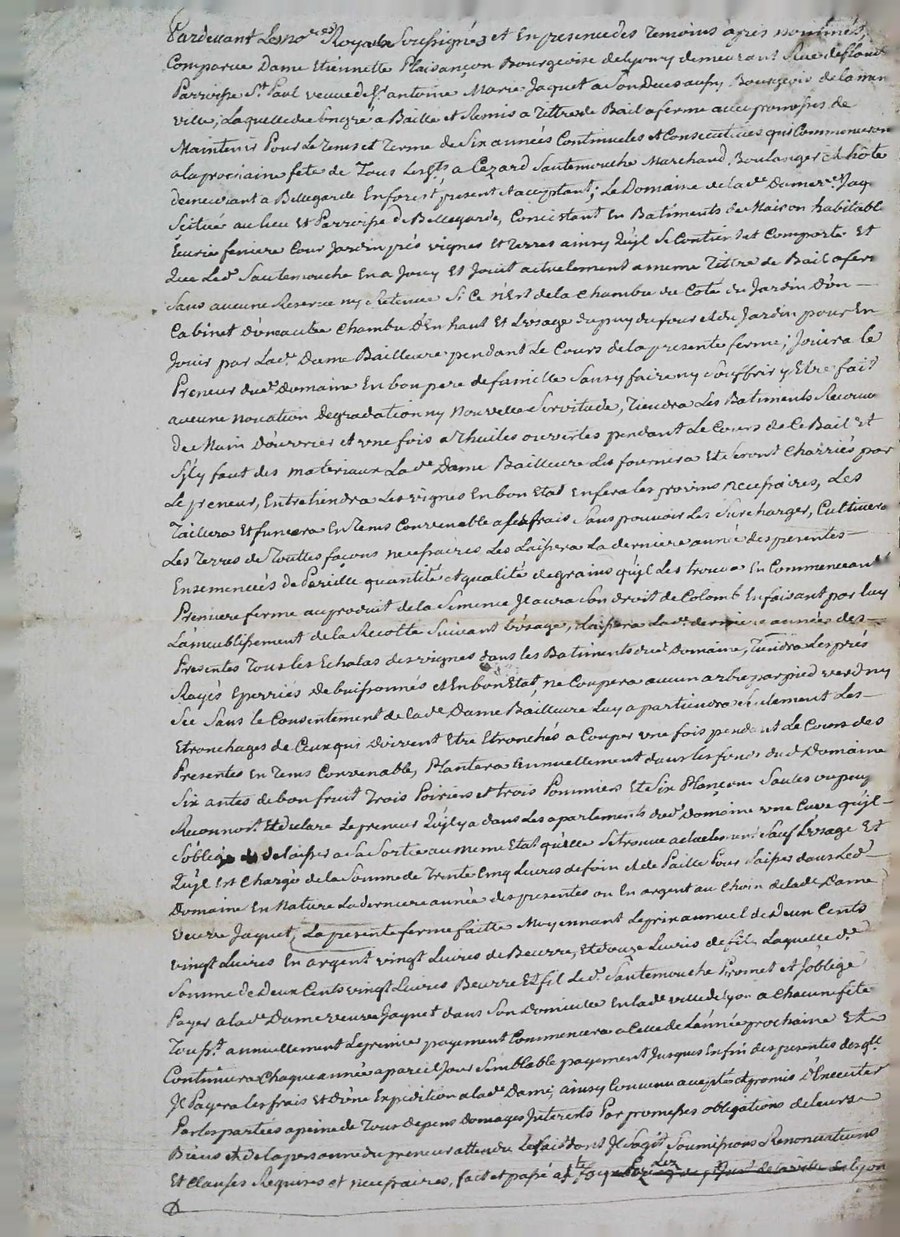 Pardevant Les no.res Royaux Soussignés et En presence des temoins après nommés,
Comparue Dame Etiennette Plaisançon Bourgeoise de lyon y demeurant Rue
Parroisse St. Paul veuve de Sr. antoine Marie Jaquet a Son deces aussy Bourgeois de la
ville, Laquelle de Son gré a Baillé et Remis a Tittre de Bail a ferme avec promesses de
Maintenir Pour Le tems et Terme de Six années Continuelles et Consecutives qui Commenceron
a la prochaine fete de Tous Les Sts a Cezard Sautemouche Marchand Boulanger et hôte
demeurant a Bellegarde Enforest present et acceptant; Le Domaine de la de. Dame
Scitué au lieu et Parroisse de Bellegarde, Concistant En Batiments de Maison habitable
Ecurie feniere Cour Jardin prés vignes et terres ainsy qu'yl Se Contient et Comporte et
que Led. Sautemouche En a Jouy Et Jouit actuelement a meme tittre de Bail a ferm
Sans aucune Reserve ny Retenue Si Ce n'Est de la Chambre du Coté du Jardin D'un —
Cabinet D'une autre Chambre D'En haut Et L'usage du puy du four et du Jardin pour En
Jouir par Lad. Dame Bailleure pendant Le Cours de la presente ferme; Jouira le
Preneur dud. Domaine En bon pere de famille Sans y faire ny Souffrir y Etre fait
aucune novation degradation ny nouvelle Servitude, Tiendra Les Batiments
De Main D'ouvrier et une fois a Thuiles ouvertes pendant Le Cours de Ce Bail Et
S'yl y faut des materiaux Lade. Dame Bailleure Les fournira Et Seront Charriés par
Le preneur, Entretiendra Les vignes En bon Etat En fera les provins necessaires, Les
Taillera Et fumera En tems Convenable a Ses frais Sans pouvoir Les Surcharger, Cultivera
Les terres de Touttes façons necessaires Les Laissera La derniere année des presentes —
Ensemencés de Pareille quantité et qualité de grains qu'yl Les trouva En Commenceant
Premiere ferme au produit de la Semence Il aura Son droit de Colomb En faisant par luy
L'ameublissement de la Recolte Suivant L'usage, Laissera Lade. derniere année des —
Presentes Tous les Echalas des vignes dans les Batiments dud. Domaine, Tiendra Les prés
Rayés Eperriés debuissonnés et En bon Etat, ne Coupera aucun arbre par pied verd ny
Sec Sans le Consentement de lade. Dame Bailleure Luy apartiendra Seulement Les —
Etronchages de Ceux qui doivent Etre Etronchés a Couper une fois pendant Le Cours des
Presentes En tems Convenable, Plantera Annuellement dans les fonds dud. Domaine
Six antes de bon fruit Trois Poiriers et trois Pommiers Et Six Plançons Saules ou peup
Reconnoit. Et declare Le preneur qu'yl y a dans Les apartements dud. Domaine une Cuve qu'yl —
S'oblige de laisser a Sa Sortie au meme Etat qu'elle Se trouve actuelement Sauf L'usage Et
qu'yl Est Chargé de la Somme de Trente Cinq Livres de foin et de Paille Pour Laisser dans Led. —
Domaine En Nature La derniere année des presentes ou En argent au Choix de lade. Dame
veuve Jaquet, La presente ferme faitte Moyennant Le prix annuel de Deux Cents
vingt Livres En argent vingt Livres de Beurre, Et douze Livres de fil, Laquelle de.
Somme de Deux Cents vingt Livres Beurre Et fil Led. Sautemouche Promet et S'oblige
Payer a lade. Dame veuve Jaquet dans Son Domicille En lade. ville de Lyon a Chacune fete
Touss.t annuellement Le premier payement Commencera a Celle de L'année prochaine Et —
Continuera Chaque année a pareil Jour Semblable payement Jusques Enfin des presentes
Il Payera les frais Et D'une Expedition a lade. Dame, ainsy Convenu accepté et promis L'Executer
Par les parties a peine de Tous depens Domages Interets Par promesses obligations de leurs
Biens et de la personne du preneur attendu Le fait dont Il S'agit Soumissions Renonciations
Et Clauses Requises et necessaires, fait et passé a